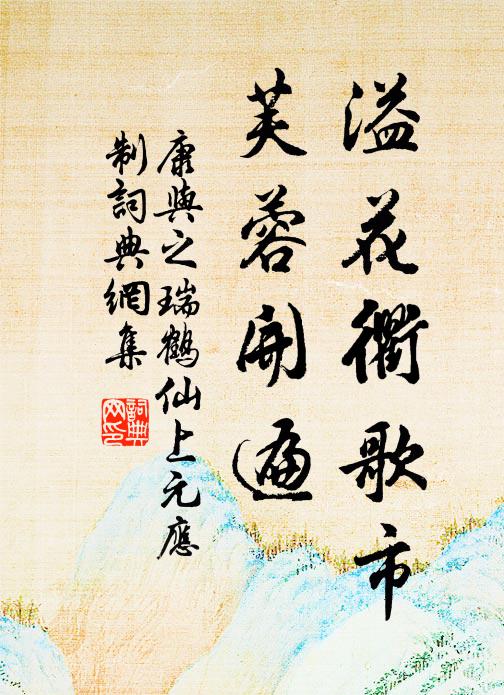 溢花衢歌市
芙蓉開遍
康與之瑞鶴仙上元應
制詞典網集
詞典網印